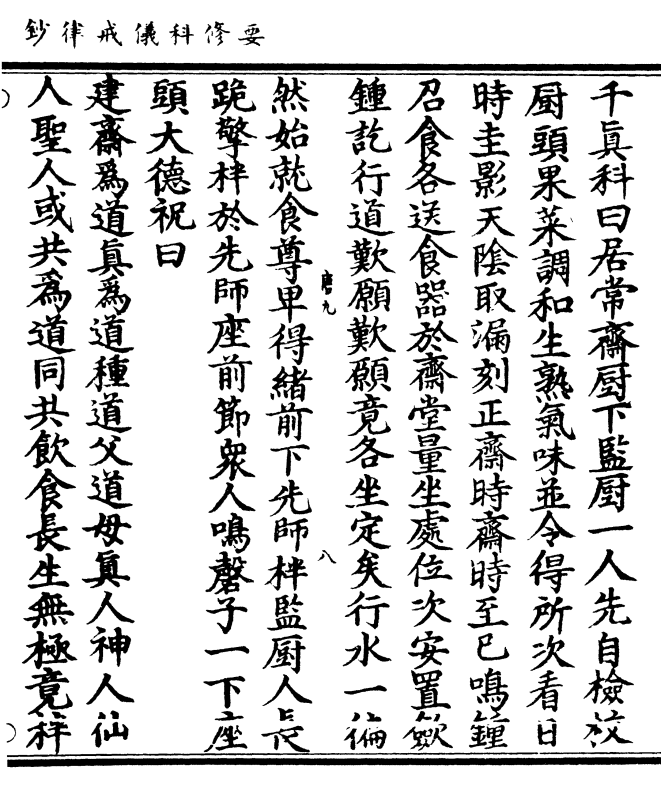 要修科儀戒律鈔
千眞科曰居常齋厨下監厨一人先自檢校
厨頭果菜調和生熟氣味並令得所次看日
時圭影天陰取漏刻正齋時齋時至已鳴鍾
召食各送食器於齋堂量坐處位次安置斂
鍾訖行道歎願歎願竟各坐定矣行水一徧
然始就食尊卑得緒前下先師柈監厨人長
唐九
八
跪擎柈於先師座前節衆人鳴磬子一下座
頭大德祝曰
建齋爲道眞爲道種道父道母眞人神人仙
人聖人或共爲道同共飮食長生無極竟柈